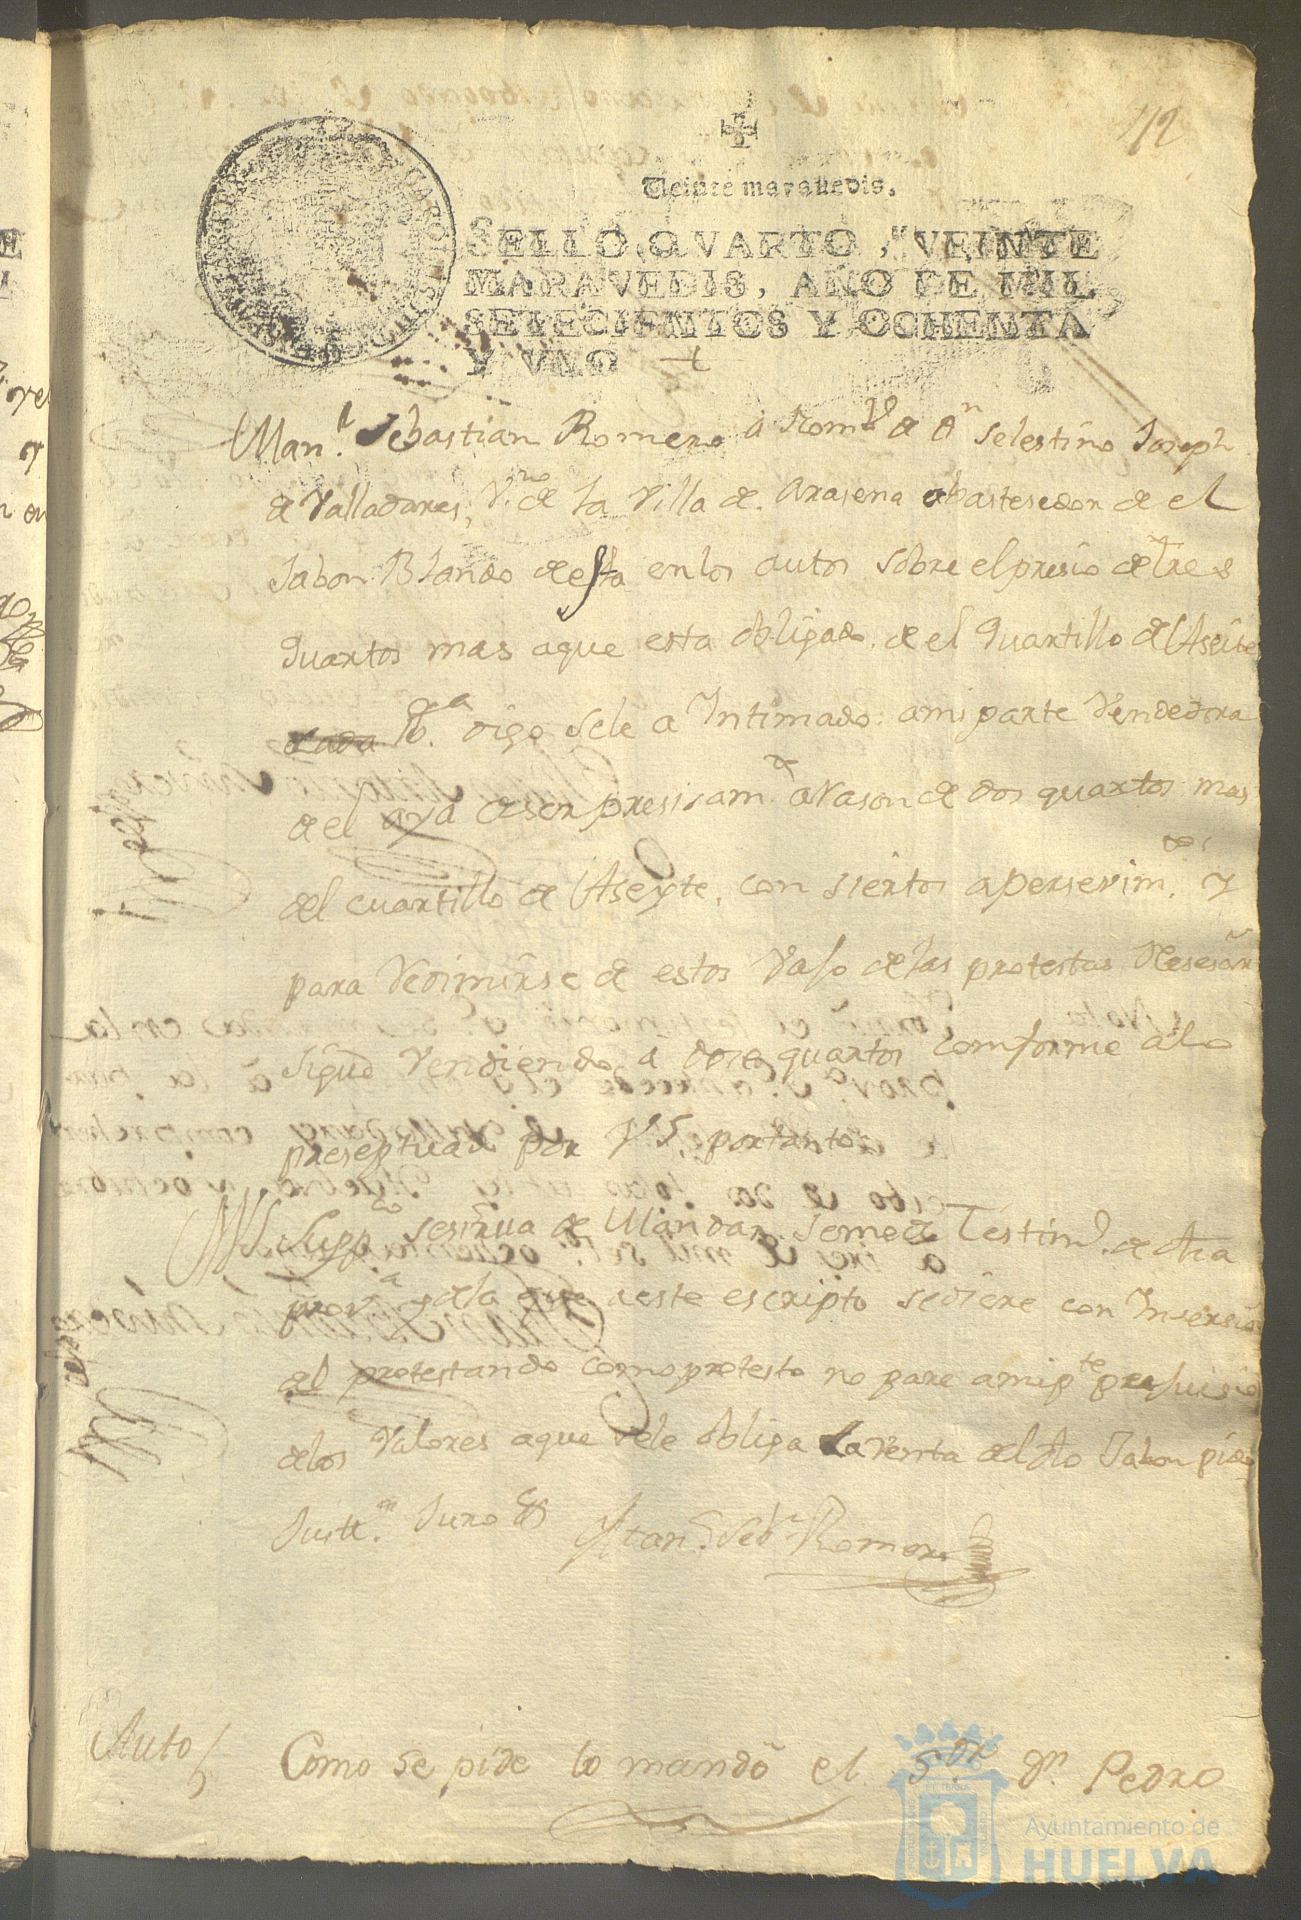 112
Veinte maravedis.
SELLO QVARTO, VEINTE
MARAVEDIS, AÑO DE MIL
SETECIENTOS Y OCHENTA
Y VNO
Man.l Sebastian Romero à Nom.e de Dn Selestino Joseph
de Valladares, V.no de la Villa de Arasena abastesedor de el
Jabon Blando de esta en los autos sobre el presio de tres
quartos mas a que esta obligado de el quartillo de Aseite
cada lb.a digo se le a Intimado a mi parte Vendedora
de el aya de ser presisam.te a Rason de dos quartos mas
del cuartillo de Aseyte, con siertos apersevim.tos y
para Redimirse de estos Vajo de las protestas Nesesar
sigue Vendiendo à dose quartos comforme a lo
preseptuado por VS, por tanto
A VS Supp.co se sirva de Mandar se me de Testim.o de dha
prov.a y de la que a este escripto se diere con Insersion
del protestando como protesto no pare a mi p.te prejuisio
de los Valores a que se le obliga la Venta del dho Jabon pido
Justt.a Juro &
Man.l Seb.n Romero
Auto
Como se pide lo mandó el S.or Dn. Pedro
Ayuntamiento de
HUELVA